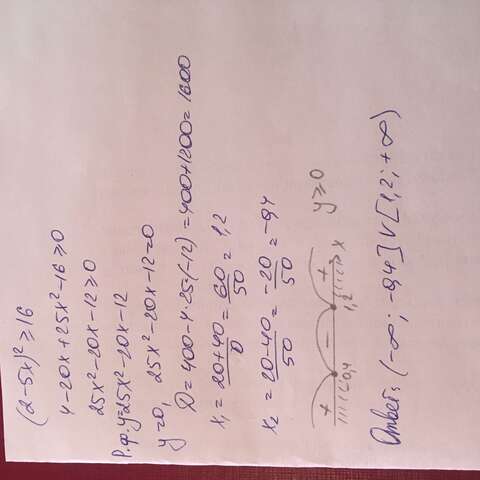 (2-5x)² ≥ 16
4-20x+25x²-16≥0
25x²-20x-12≥0
Р.ф. y=25x²-20x-12
y=0, 25x²-20x-12=0
D=400-4·25·(-12)=400+1200=1600
x₁ = (20+40)/0 = 60/50 = 1,2
x₂ = (20-40)/50 = -20/50 = -0,4
+ - + y≥0
-0,4 1,2 x
Ответ: (-∞; -0,4] ∨ [1,2; +∞)